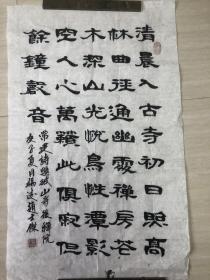 清晨入古寺初日照高
林曲徑通幽處禪房花
木深山光悅鳥性潭影
空人心萬籟此俱寂但
餘鐘磬音
常建詩題破山寺後禪院
庚子夏月